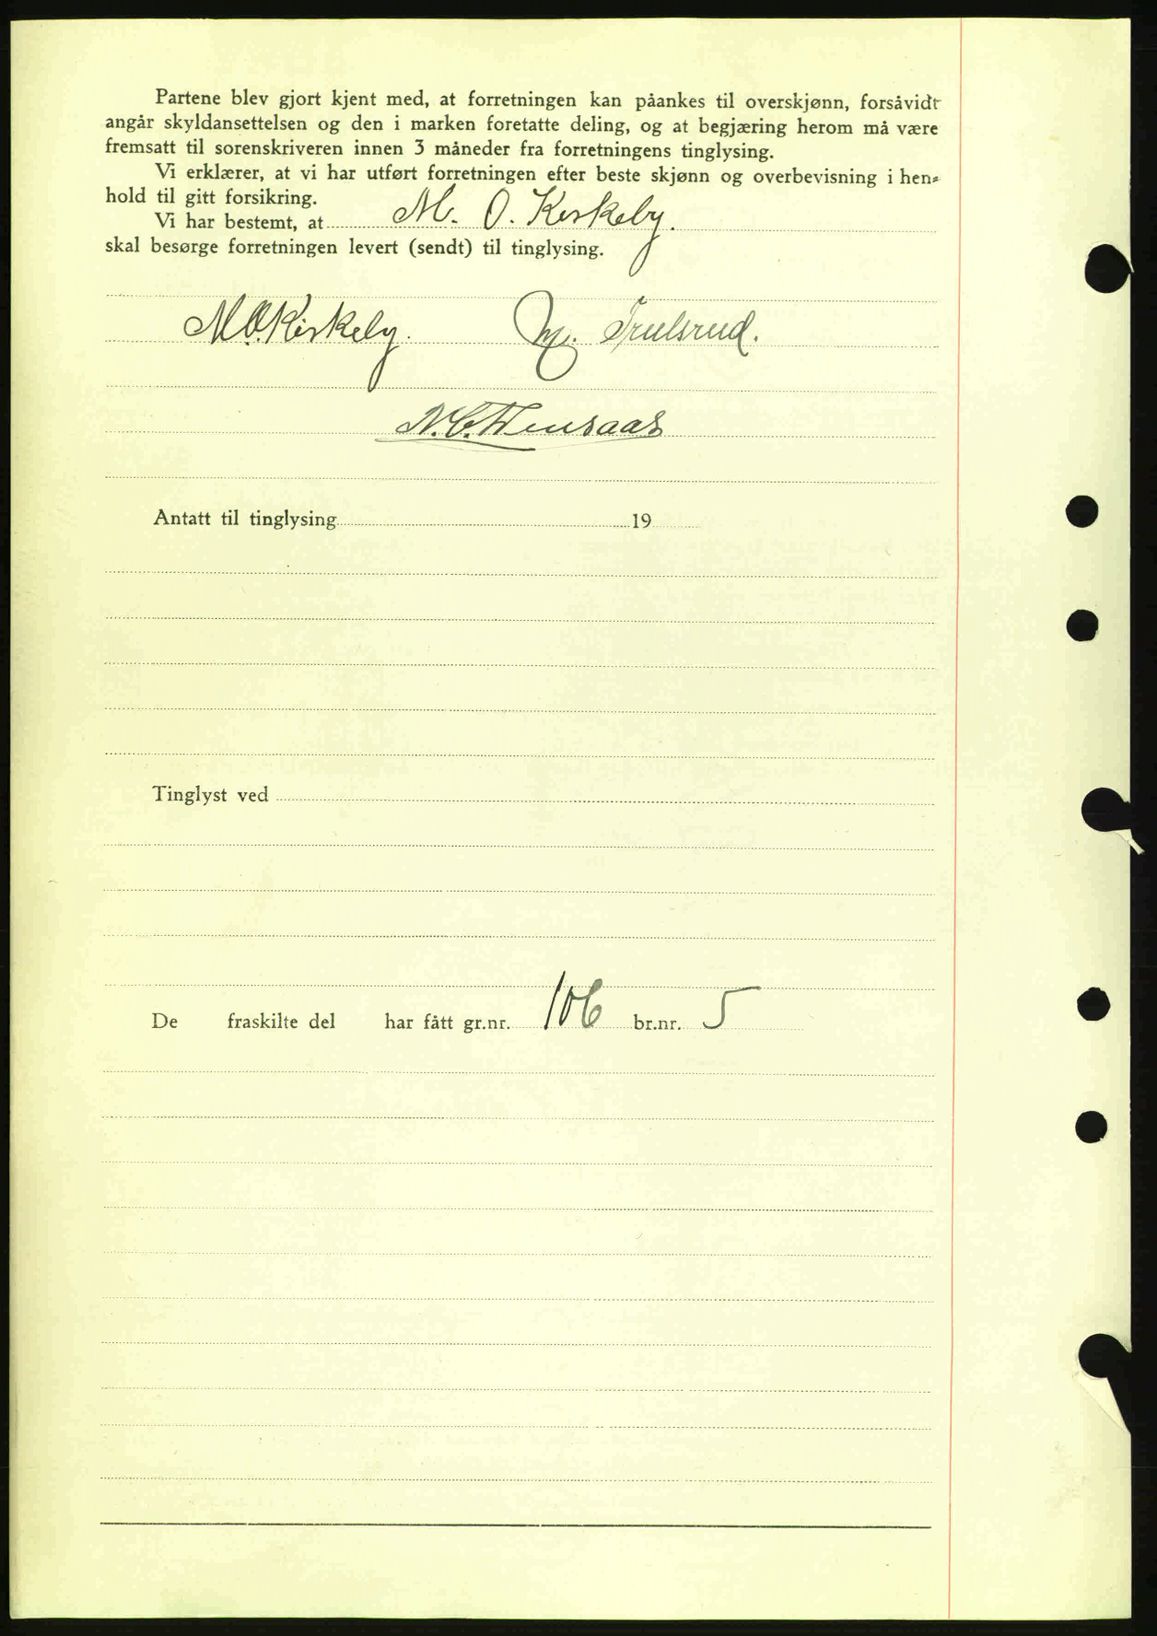 Partene blev gjort kjent med, at forretningen kan påankes til overskjønn, forsåvidt
angår skyldansettelsen og den i marken foretatte deling, og at begjæring herom må være
fremsatt til sorenskriveren innen 3 måneder fra forretningens tinglysing.
Vi erklærer, at vi har utført forretningen efter beste skjønn og overbevisning i hen-
hold til gitt forsikring.
Vi har bestemt, at M. O. Kirkeby.
skal besørge forretningen levert (sendt) til tinglysing.
M.O. Kirkeby. M. Trulsrud.
N.C. Wensaas
Antatt til tinglysing 19
Tinglyst ved
De fraskilte del har fått gr.nr. 106 br.nr. 5